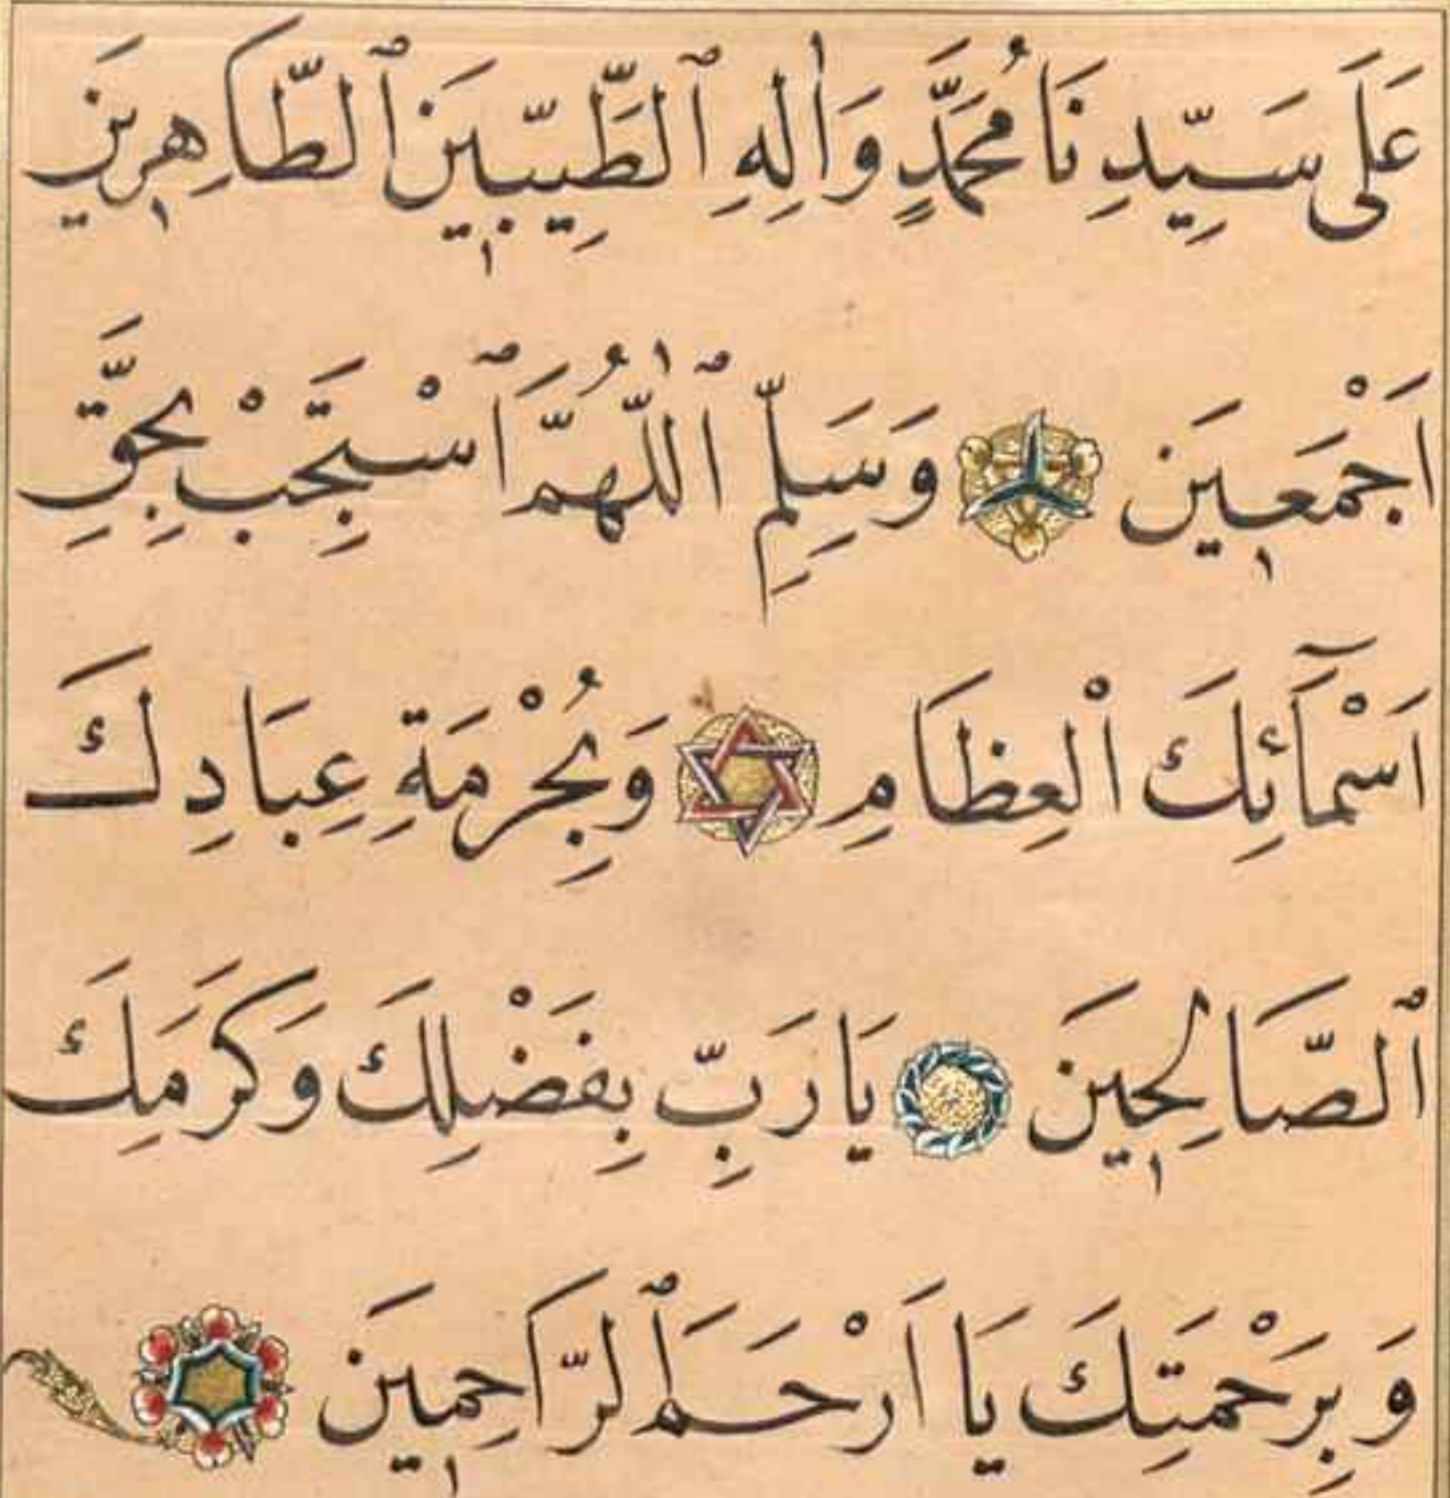 عَلَى سَيِّدِنَا مُحَمَّدٍ وَاٰلِهِ ٱلطَّيِّبِينَ ٱلطَّاهِرِينَ
اَجْمَعِينَ وَسَلِّمْ ٱللّٰهُمَّ ٱسْتَجِبْ بِحَقِّ
اَسْمَآئِكَ الْعِظَامِ وَبِحُرْمَةِ عِبَادِكَ
ٱلصَّالِحِينَ يَا رَبِّ بِفَضْلِكَ وَكَرَمِكَ
وَبِرَحْمَتِكَ يَا اَرْحَمَ ٱلرَّاحِمِينَ